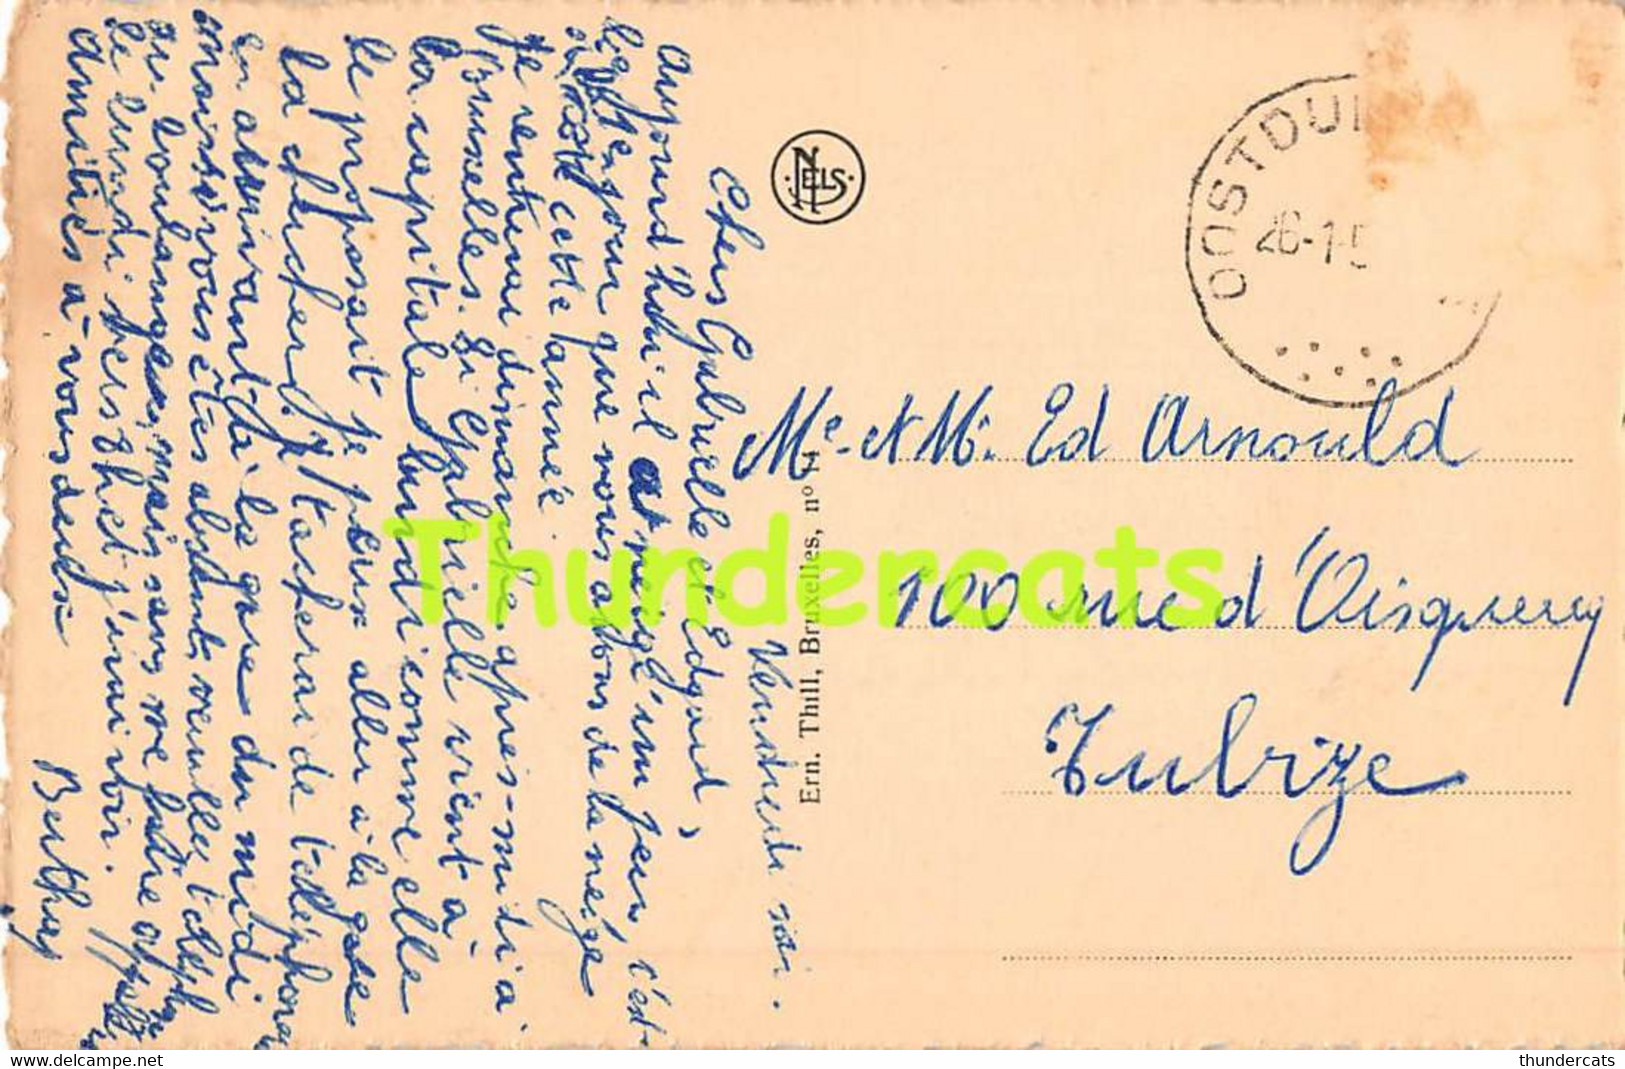 Vendredi soir.
Chers Gabrielle et Edgard,
Aujourd'hui il a neigé un peu c'est
le 1er jour que nous avons de la neige
cette année
Je rentrerai dimanche après-midi à
Bruxelles. Si Gabrielle vient à
la capitale lundi comme elle
se proposait je peux aller à la gare
la chercher. J'tacherai de téléphoner
en arrivant à la gare du midi
mais si vous êtes absents veuillez téléph
boulanger, mais sans votre
le lundi vers 8h et j'irai voir.
amitiés à vous deux
Berthay
NELS
Ern. Thill, Bruxelles, nº 14
OOSTDUI
26-1-5
Me et M. Ed Arnould
100 rue d'Oisquercq
Tubize
Thundercats
thundercats - delcampe.net